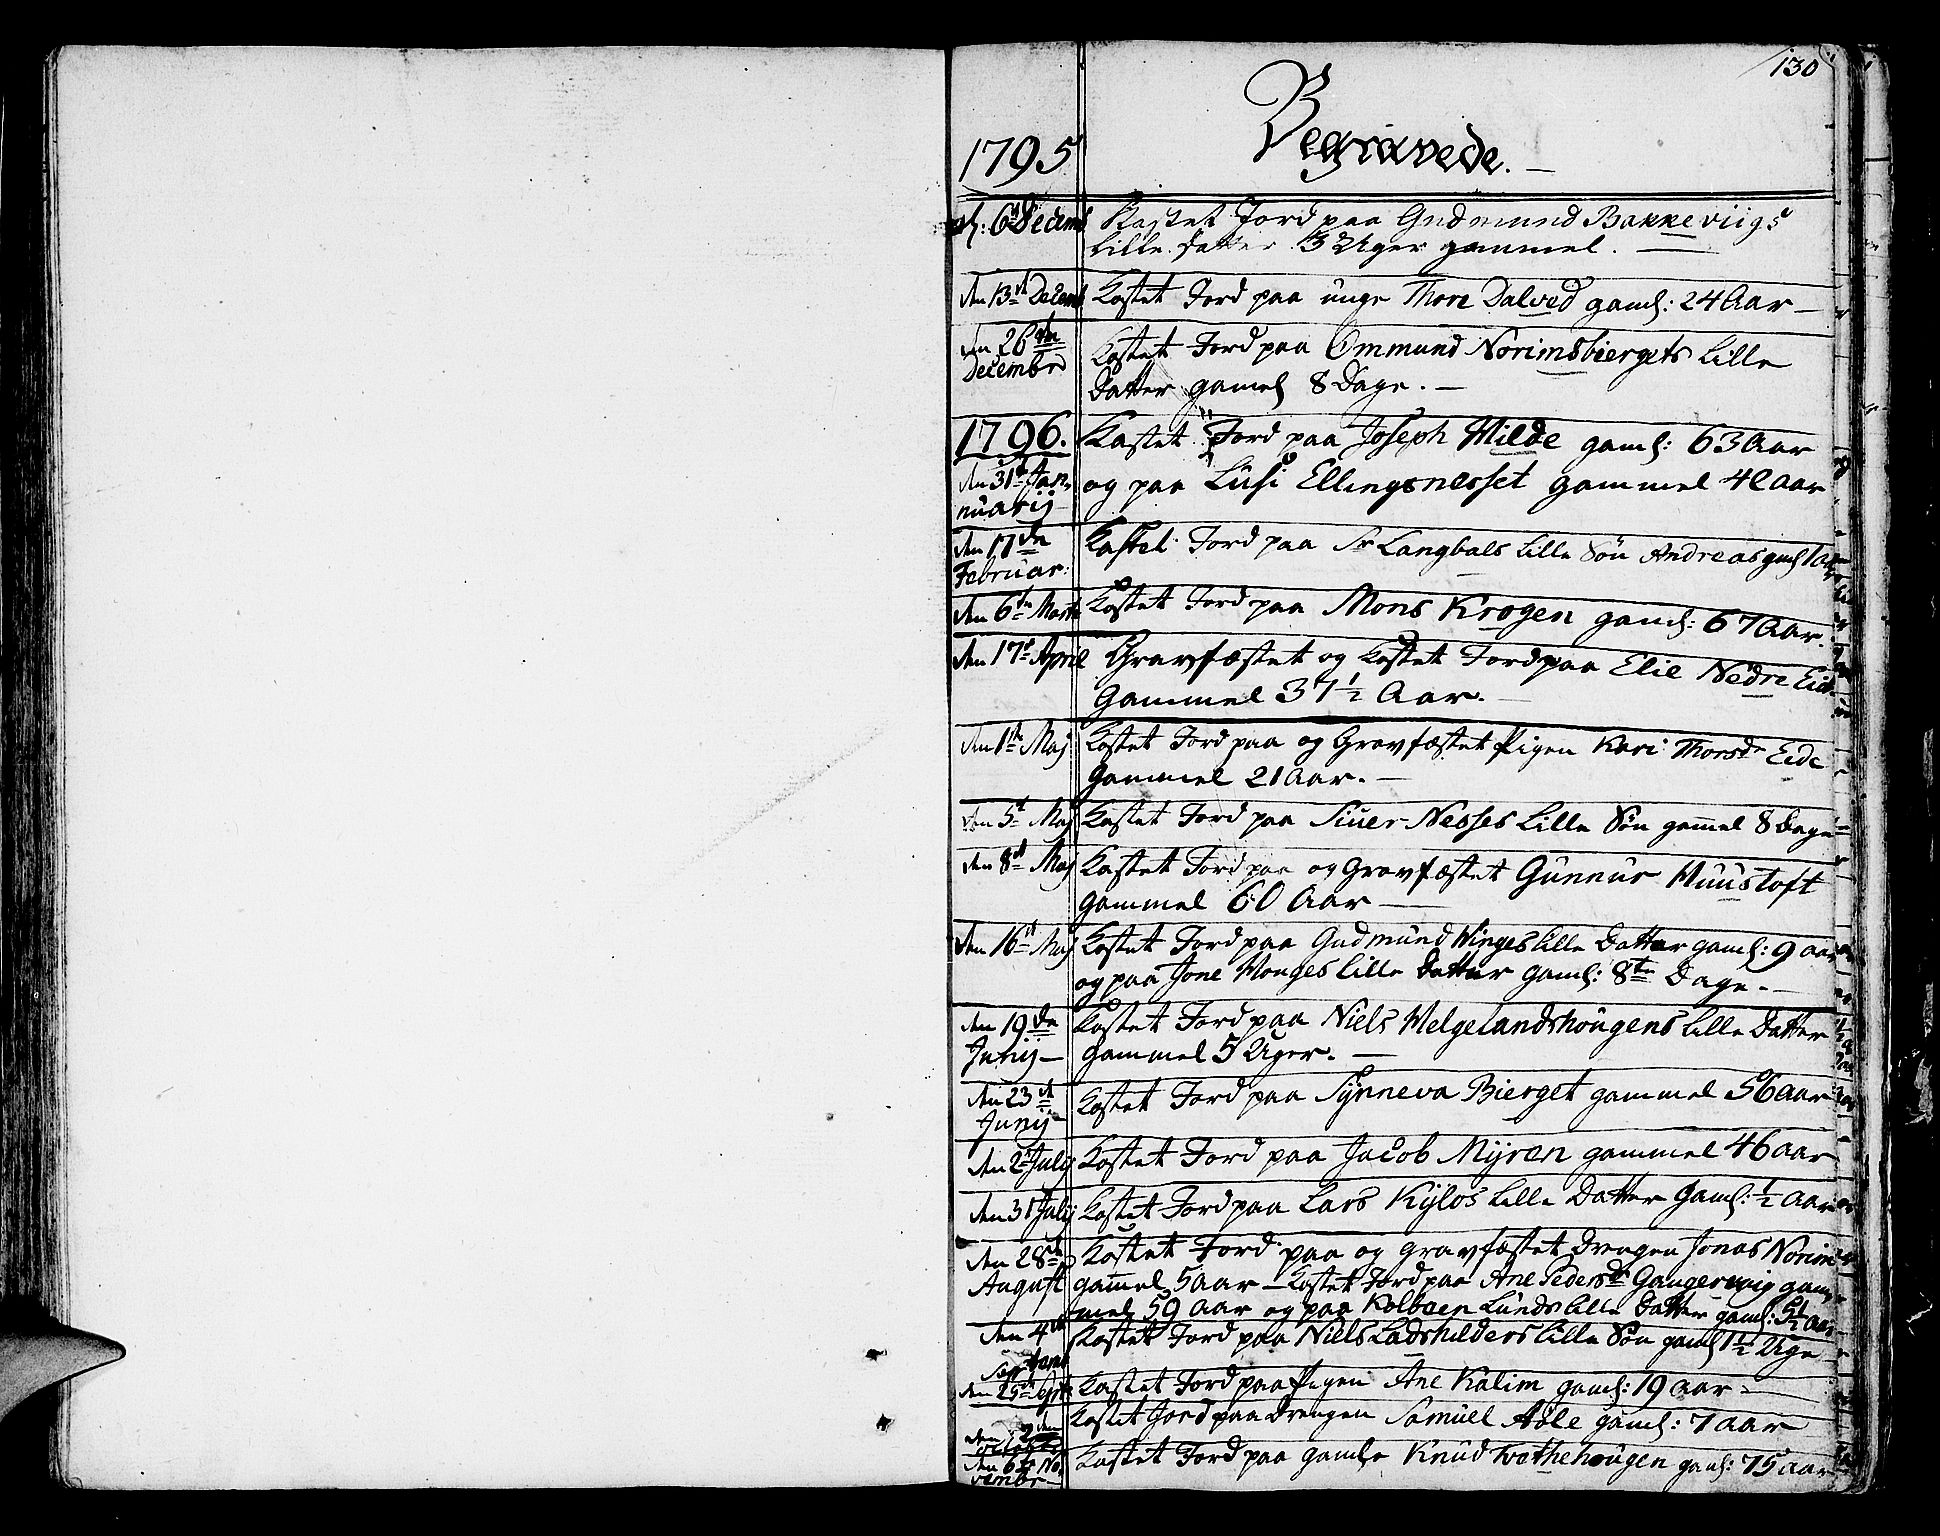 130
1795 Begravede.
d: 6t Decemb Kastet Jord paa Gudmund Bakkeviigs
Lille datter 3 Uger gammel.
den 13de Decemb Kastet Jord paa unge Thore Dalved gaml: 24 Aar
den 26de Kastet Jord paa Ommund Norimsbiergets Lille
Decembr Datter gamel 8 Dage.
1796. Kastet Jord paa Joseph Milde gaml: 63 Aar
den 31t Jan- og paa Lusi Ellingsnesset gammel 40 aar
nuarij
den 17de Kastet Jord paa Sr Langbals Lille Søn Andreas gaml 1 aar
Februar:
den 6te Marti Kastet Jord paa Mons Krogen gaml: 67 Aar.
den 17de April Gravfæstet og Kastet Jord paa Elie Nedre Eide
gammel 37 1/2 Aar.
den 1te Maj Kastet Jord paa og Gravfæstet Pigen Kari Thorsdr Eide
gammel 21 aar.
den 5t Maj Kastet Jord paa Siuer Nesses Lille Søn gamel 8 Dage
den 8de Maj Kastet Jord paa og Gravfæstet Gunnur Huustoft
gammel 60 Aar
den 16de Maj Kastet Jord paa Gudmund Winges lille Datter gaml: 9 aar
og paa Jone Mouges lille Datter gaml: 8te Dage.
den 19de Kastet Jord paa Niels Helgelandshougens lille Datter
Junij gammel 5 Uger.
den 23de Kastet Jord paa Synneva Bierget gammel 56 aar
Junij
den 2de Julij Kastet Jord paa Jacob Myren gammel 46 aar
den 31 Julij Kastet Jord paa Lars Kylos Lille Datter gaml: 1/2 aar
den 28de Kastet Jord paa og gravfæstet drengen Jonas Norim
August gammel 5 aar Kastet Jord paa Ane Pedersdr Gangerviig gam-
mel 59 aar og paa Kolbæn Lunds lille Datter gaml: 5 1/2 aar
den 4de Kastet Jord paa Niels Ladshilders lille Søn gaml 1 1/2 Uge
Septemb
den 25de Sptr Kastet Jord paa Pigen Ane Kalim gaml: 19 aar
den 2den Kastet Jord paa Drengen Samuel Aale gaml: 7 aar
octobr
den 6te No- Kastet Jord paa gamle Knud Tvethehougen gaml: 75 aar
vembr